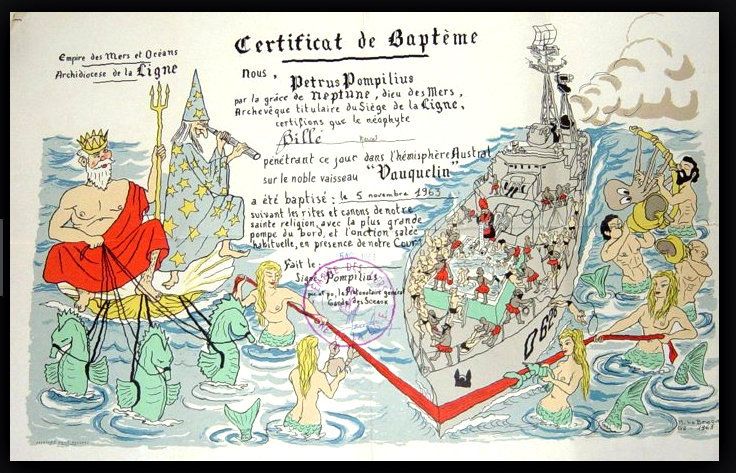 Certificat de Baptême
Empire des Mers et Océans
Archidiocèse de la Ligne
Nous, Petrus Pompilius
par la grâce de Neptune, dieu des Mers,
Archevêque titulaire du Siège de la Ligne,
certifions que le néophyte
Billé
pénétrant ce jour dans l'hémisphère Austral
sur le noble vaisseau "Vauquelin"
a été baptisé : le 5 novembre 1963
suivant les rites et canons de notre
sainte religion, avec la plus grande
pompe du bord, et l'onction salée
habituelle, en presence de notre Cour
Fait le :
Signé Pompilius
le Protonotaire général
Garde des Sceaux
D 628
1963